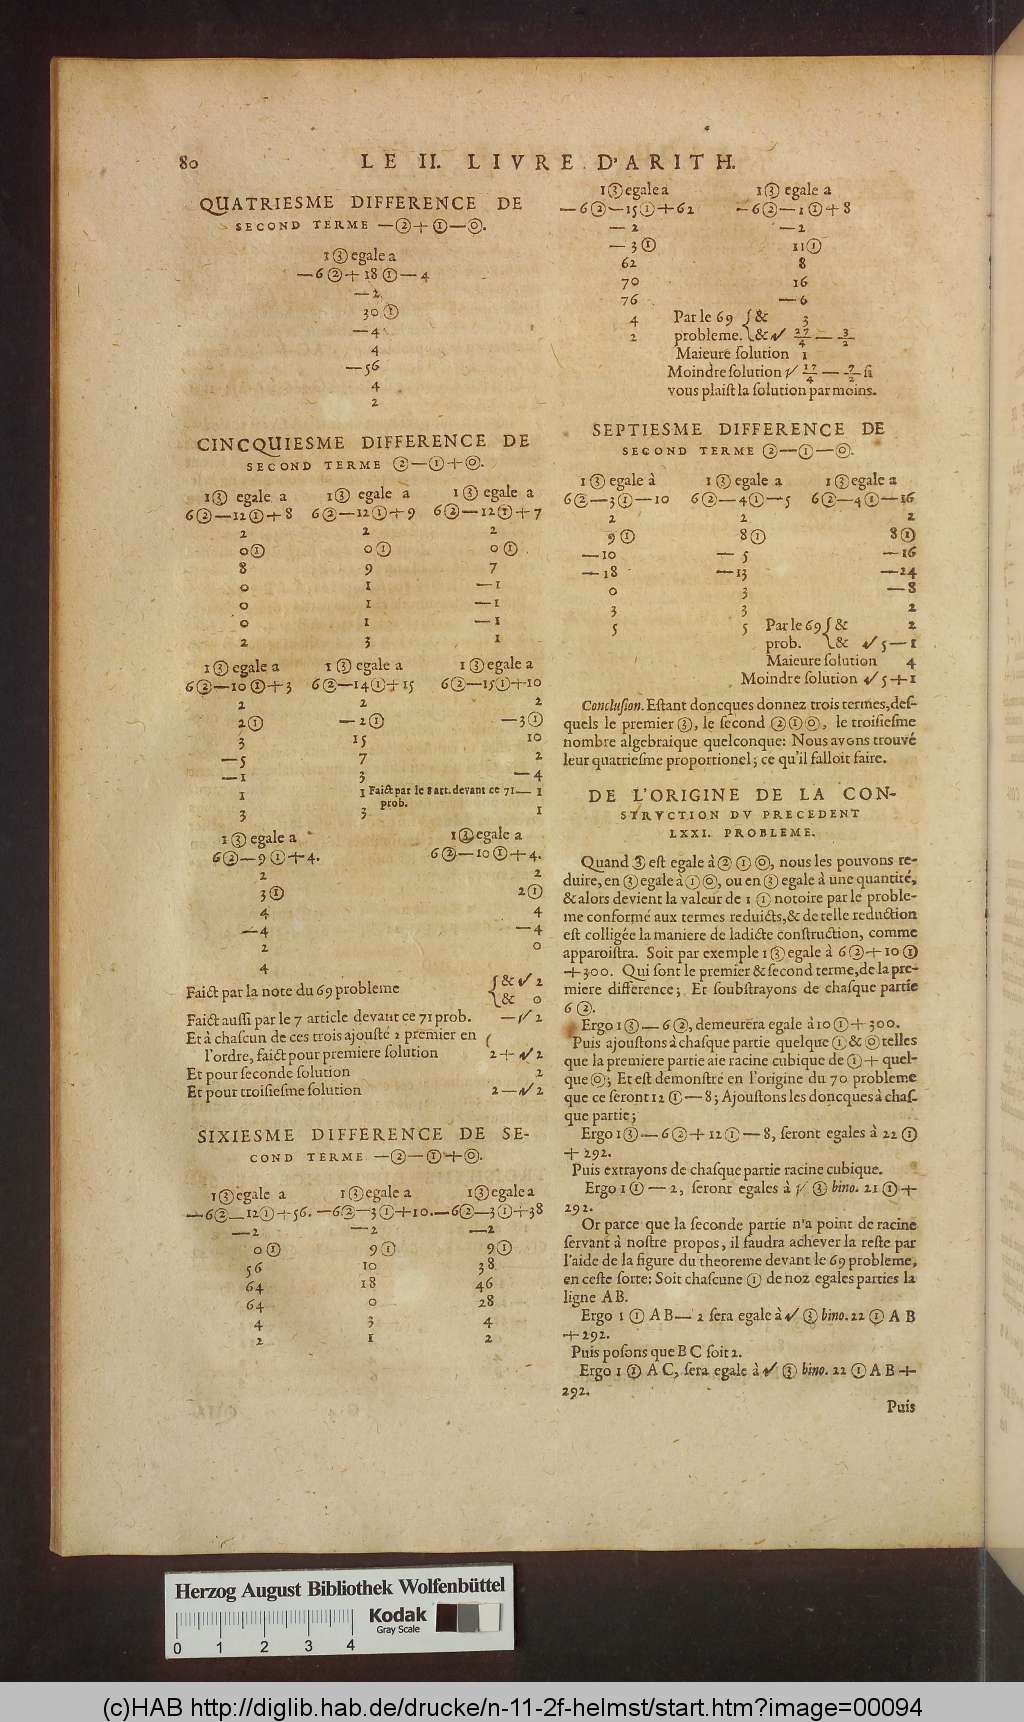 80
LE II. LIVRE D'ARITH.
QUATRIESME DIFFERENCE DE
SECOND TERME —②+①—⓪.
1③ egale a
—6②+18①—4
—2
30①
—4
4
—56
4
2
CINCQUIESME DIFFERENCE DE
SECOND TERME ②—①+⓪.
1③ egale a 1③ egale a 1③ egale a
6②—12①+8 6②—12①+9 6②—12①+7
2 2 2
0① 0① 0①
8 9 7
0 1 —1
0 1 —1
0 1 —1
2 3 1
1③ egale a 1③ egale a 1③ egale a
6②—10①+3 6②—14①+15 6②—15①+10
2 2 2
2① —2① —3①
3 15 10
—5 7 2
—1 3 —4
1 1 Faict par le 8 art. devant ce 71 — 1
prob.
3 3 1
1③ egale a 1③ egale a
6②—9①+4. 6②—10①+4.
2 2
3① 2①
4 4
—4 —4
2 0
4
Faict par la note du 69 probleme {& √ 2
& 0
Faict aussi par le 7 article devant ce 71 prob. —√ 2
Et à chascun de ces trois ajousté 2 premier en
l'ordre, faict pour premiere solution 2+√ 2
Et pour seconde solution 2
Et pour troisiesme solution 2—√ 2
SIXIESME DIFFERENCE DE SE-
COND TERME —②—①+⓪.
1③ egale a 1③ egale a 1③ egale a
—6②—12①+56. —6②—3①+10. —6②—3①+38
—2 —2 —2
0① 9① 9①
56 10 38
64 18 46
64 0 28
4 3 4
2 1 2
1③ egale a 1③ egale a
—6②—15①+62 —6②—1①+8
—2 —2
—3① 11①
62 8
70 16
76 —6
4 Par le 69 {& 3
2 probleme. & √ 27/4 — 3/2
Maieure solution 1
Moindre solution √ 27/4 — 7/2 si
vous plaist la solution par moins.
SEPTIESME DIFFERENCE DE
SECOND TERME ②—①—⓪.
1③ egale à 1③ egale a 1③ egale a
6②—3①—10 6②—4①—5 6②—4①—16
2 2 2
9① 8① 8①
—10 —5 —16
—18 —13 —24
0 3 —8
3 3 2
5 5 Par le 69 {& 2
prob. & √ 5—1
Maieure solution 4
Moindre solution √ 5+1
Conclusion. Estant doncques donnez trois termes, des-
quels le premier ③, le second ②①⓪, le troisiesme
nombre algebraique quelconque: Nous avons trouvé
leur quatriesme proportionel; ce qu'il falloit faire.
DE L'ORIGINE DE LA CON-
STRVCTION DV PRECEDENT
LXXI. PROBLEME.
Quand ③ est egale à ②①⓪, nous les pouvons re-
duire, en ③ egale à ①⓪, ou en ③ egale à une quantité,
& alors devient la valeur de 1① notoire par le proble-
me conformé aux termes reduicts, & de telle reduction
est colligée la maniere de ladicte construction, comme
apparoistra. Soit par exemple 1③ egale à 6②+10①
+300. Qui sont le premier & second terme, de la pre-
miere difference; Et soubstrayons de chasque partie
6②.
Ergo 1③—6②, demeurera egale à 10①+300.
Puis ajoustons à chasque partie quelque ①&⓪ telles
que la premiere partie aie racine cubique de ①+ quel-
que ⓪; Et est demonstré en l'origine du 70 probleme
que ce seront 12①—8; Ajoustons les doncques à chas-
que partie;
Ergo 1③—6②+12①—8, seront egales à 22①
+292.
Puis extrayons de chasque partie racine cubique.
Ergo 1①—2, seront egales à √③ bino. 21①+
292.
Or parce que la seconde partie n'a point de racine
servant à nostre propos, il faudra achever la reste par
l'aide de la figure du theoreme devant le 69 probleme,
en ceste sorte: Soit chascune ① de noz egales parties la
ligne A B.
Ergo 1① A B—2 sera egale à √③ bino. 22① A B
+292.
Puis posons que B C soit 2.
Ergo 1① A C, sera egale à √③ bino. 22① A B+
292.
Puis
Herzog August Bibliothek Wolfenbüttel
Kodak
Gray Scale
0 1 2 3 4
(c)HAB http://diglib.hab.de/drucke/n-11-2f-helmst/start.htm?image=00094